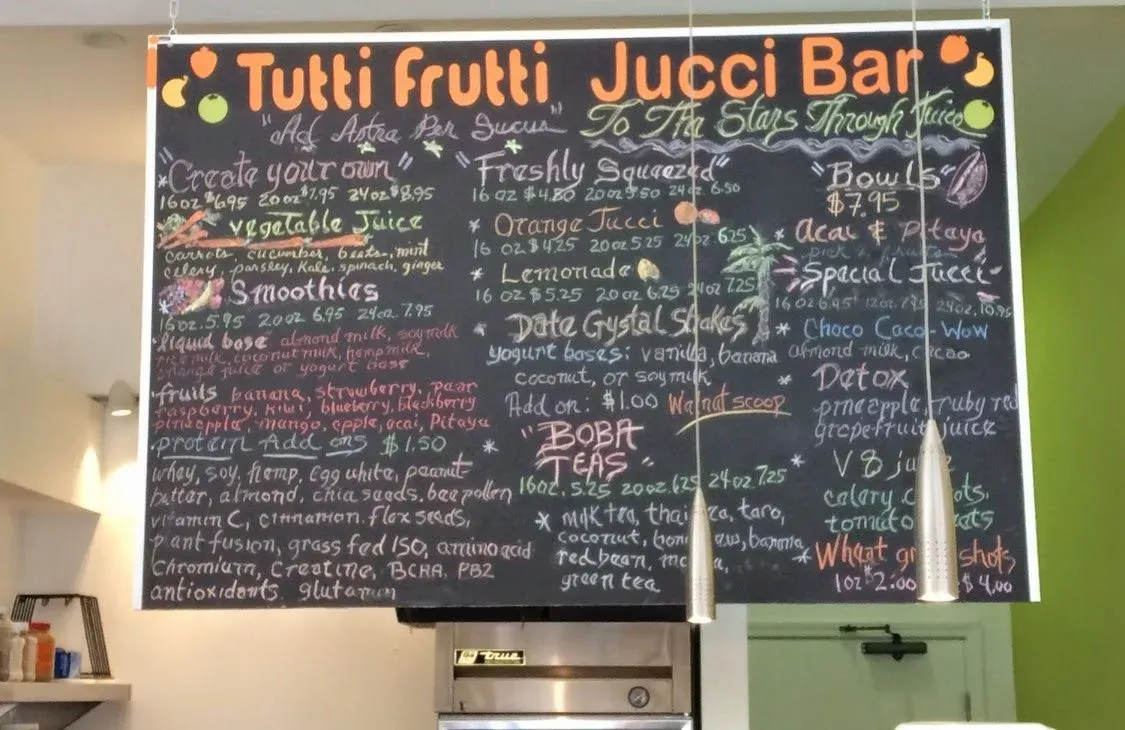 Tutti frutti Jucci Bar
"Ad Astra Per Sucus"
To The Stars Through Juice
*"Create your own"
16 oz $6.95 20 oz $7.95 24 oz $8.95
vegetable Juice
carrots, cucumber, beets, mint
celery, parsley, Kale, spinach, ginger
Smoothies
16 oz. 5.95 20 oz 6.95 24 oz. 7.95
liquid base almond milk, soymilk
rice milk, coconut milk, hemp milk,
orange juice or yogurt base
fruits banana, strawberry, pear
raspberry, kiwi, blueberry, blackberry
pineapple, mango, apple, acai, Pitaya
protein Add ons $1.50
whey, soy, hemp, egg white, peanut
butter, almond, chia seeds, bee pollen
vitamin C, cinnamon, flax seeds,
plant fusion, grass fed ISO, amino acid
Chromium, Creatine, BCAA, PB2
antioxidants, glutamin
"Freshly Squeezed"
16 oz $4.80 20 oz 5.50 24 oz. 6.50
* Orange Jucci
16 oz. $4.25 20 oz 5.25 24 oz 6.25
* Lemonade
16 oz $5.25 20 oz 6.25 24 oz 7.25
* Date Crystal Shakes
yogurt bases: vanilla, banana
coconut, or soymilk
Add on: $1.00 Walnut scoop
"BOBA
TEAS"
16 oz. 5.25 20 oz 6.25 24 oz 7.25
* milk tea, thai, taro,
coconut, banana
red bean,
green tea
"Bowls"
$7.95
* Acai & Pitaya
Special Jucci
16 oz 6.95 24 oz. 10.95
* Choco Caco-Wow
almond milk, cacao
* Detox
pineapple, ruby red
grapefruit juice
* V8
celery,
tomato
* Wheat shots
1 oz $2.00 $4.00
true